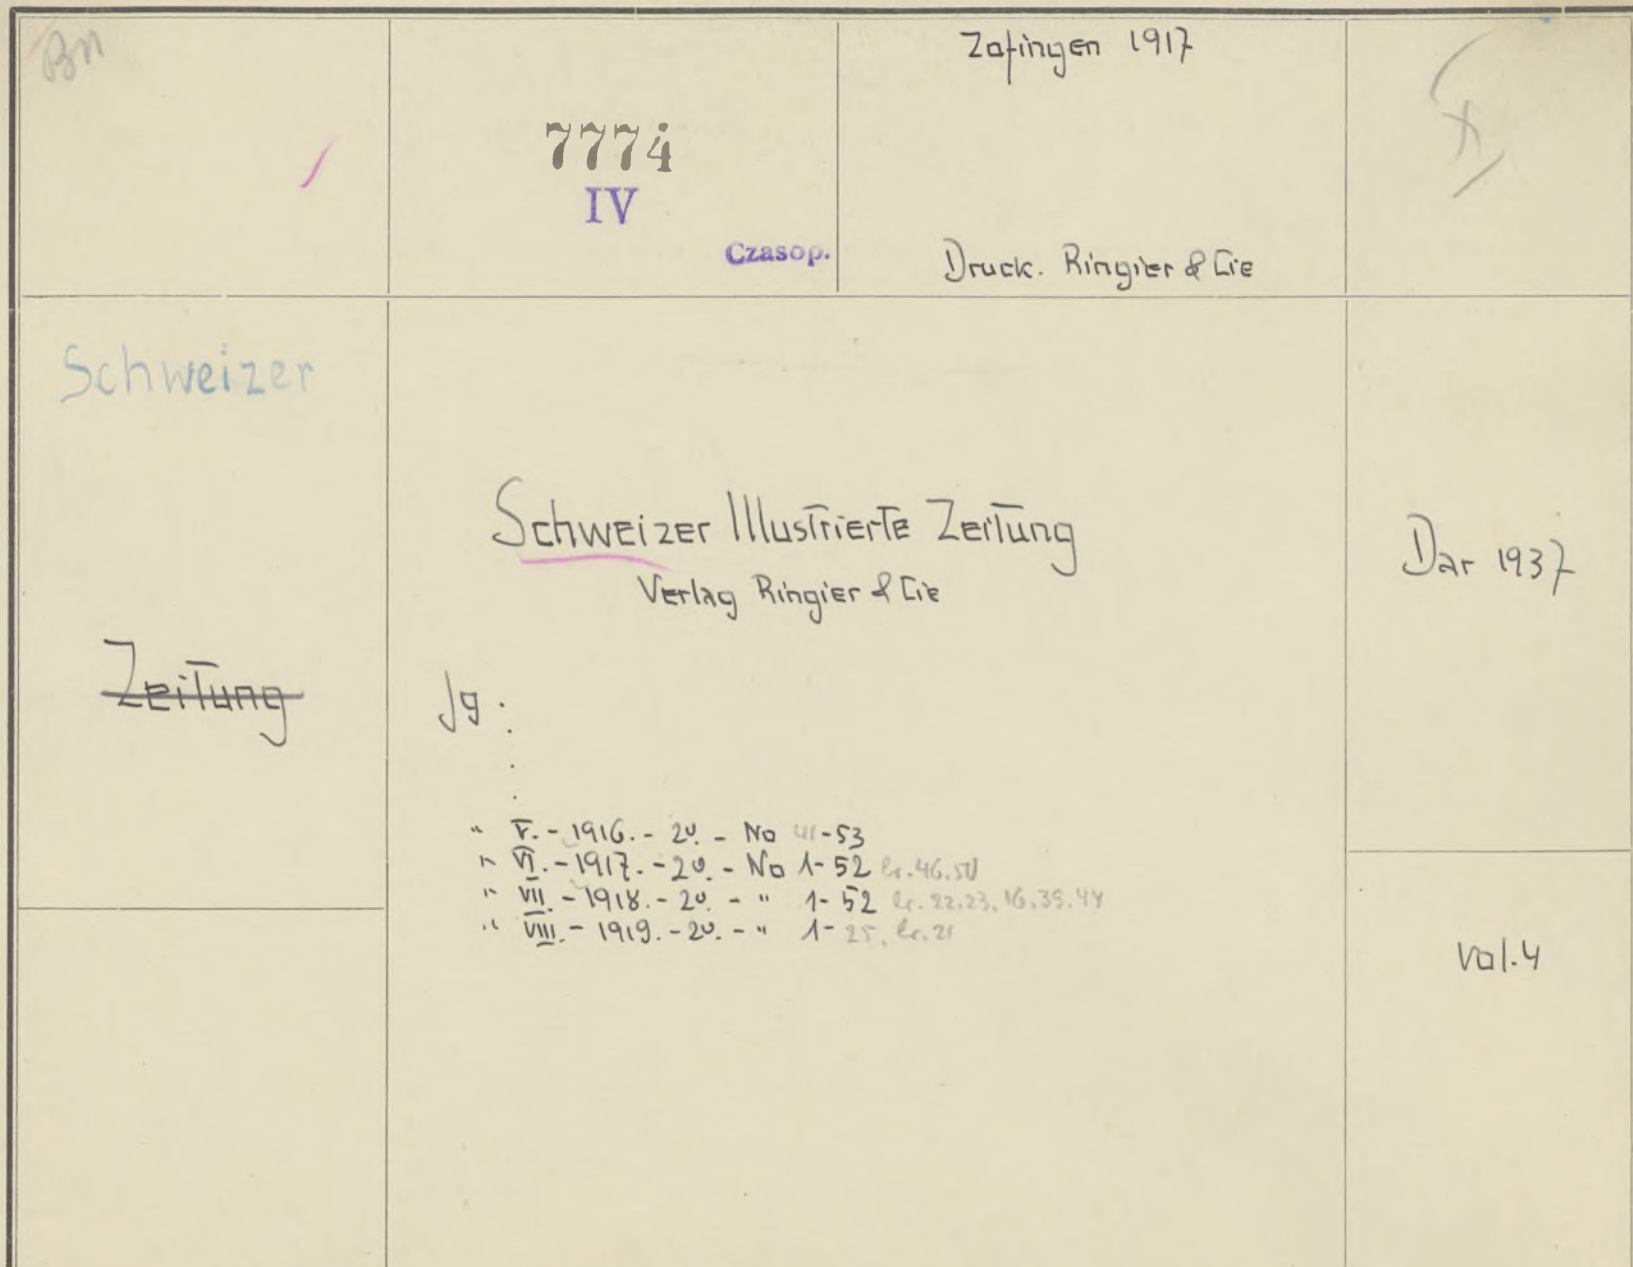 Bn
7774
IV
Czasop.
Zofingen 1917
Druck. Ringier & Cie
Schweizer
Zeitung
Schweizer Illustrierte Zeitung
Verlag Ringier & Cie
Jg.
" V. - 1916. - 2º. - No 41-53
" VI. - 1917. - 2º. - No 1-52 br. 46, 50
" VII. - 1918. - 2º. - " 1-52 br. 22, 23, 16, 39, 44
" VIII. - 1919. - 2º. - " 1-25, br. 21
Dar 1937
vol.4